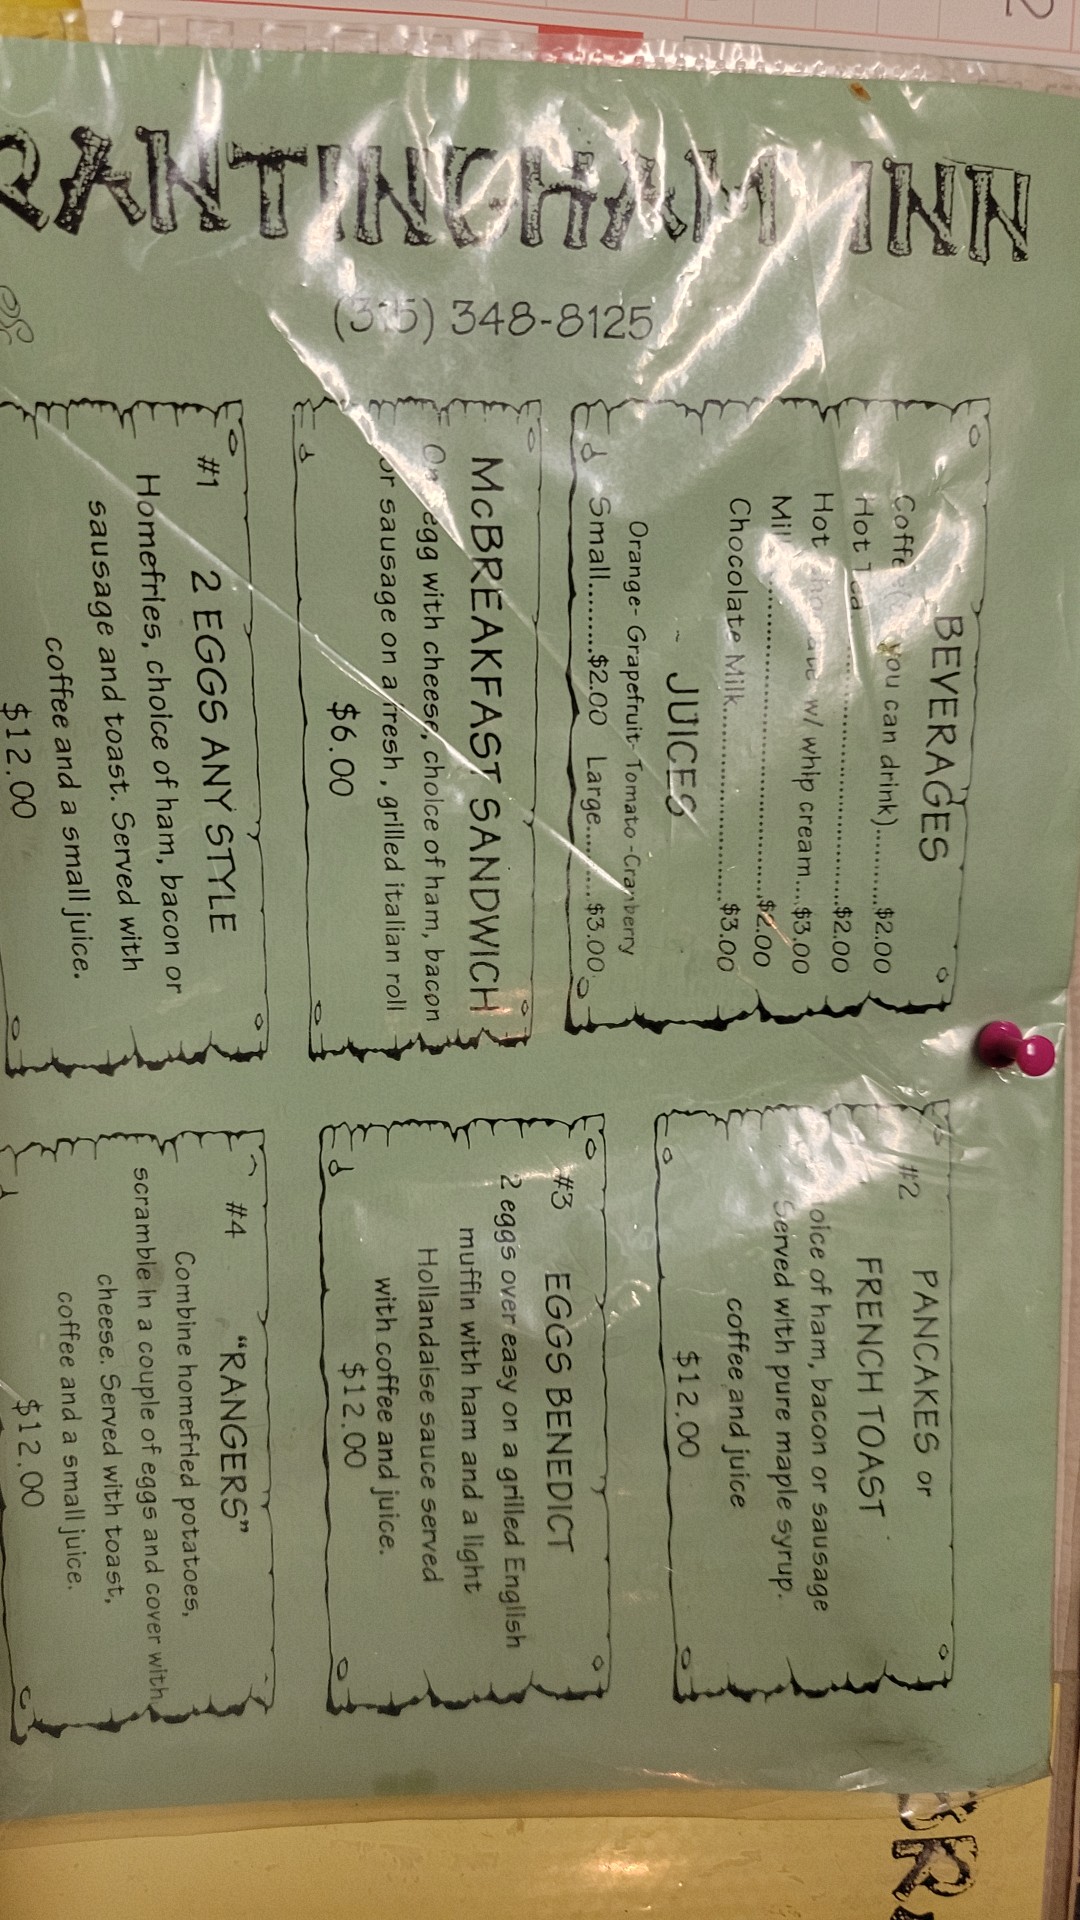 RANTINGHAM INN
(315) 348-8125
BEVERAGES
Coffee you can drink)..........$2.00
Hot Tea ..............................$2.00
Hot w/ whip cream....$3.00
Milk ..............................$2.00
Chocolate Milk......................$3.00
~ JUICES
Orange- Grapefruit- Tomato -Cranberry
Small.........$2.00 Large.........$3.00
McBREAKFAST SANDWICH
One egg with cheese, choice of ham, bacon
or sausage on a fresh , grilled italian roll
$6.00
#1 2 EGGS ANY STYLE
Homefries, choice of ham, bacon or
sausage and toast. Served with
coffee and a small juice.
$12.00
#2 PANCAKES or
FRENCH TOAST
oice of ham, bacon or sausage
Served with pure maple syrup.
coffee and juice
$12.00
#3 EGGS BENEDICT
2 eggs over easy on a grilled English
muffin with ham and a light
Hollandaise sauce served
with coffee and juice.
$12.00
#4 "RANGERS"
Combine homefried potatoes,
scramble in a couple of eggs and cover with
cheese. Served with toast,
coffee and a small juice.
$12.00